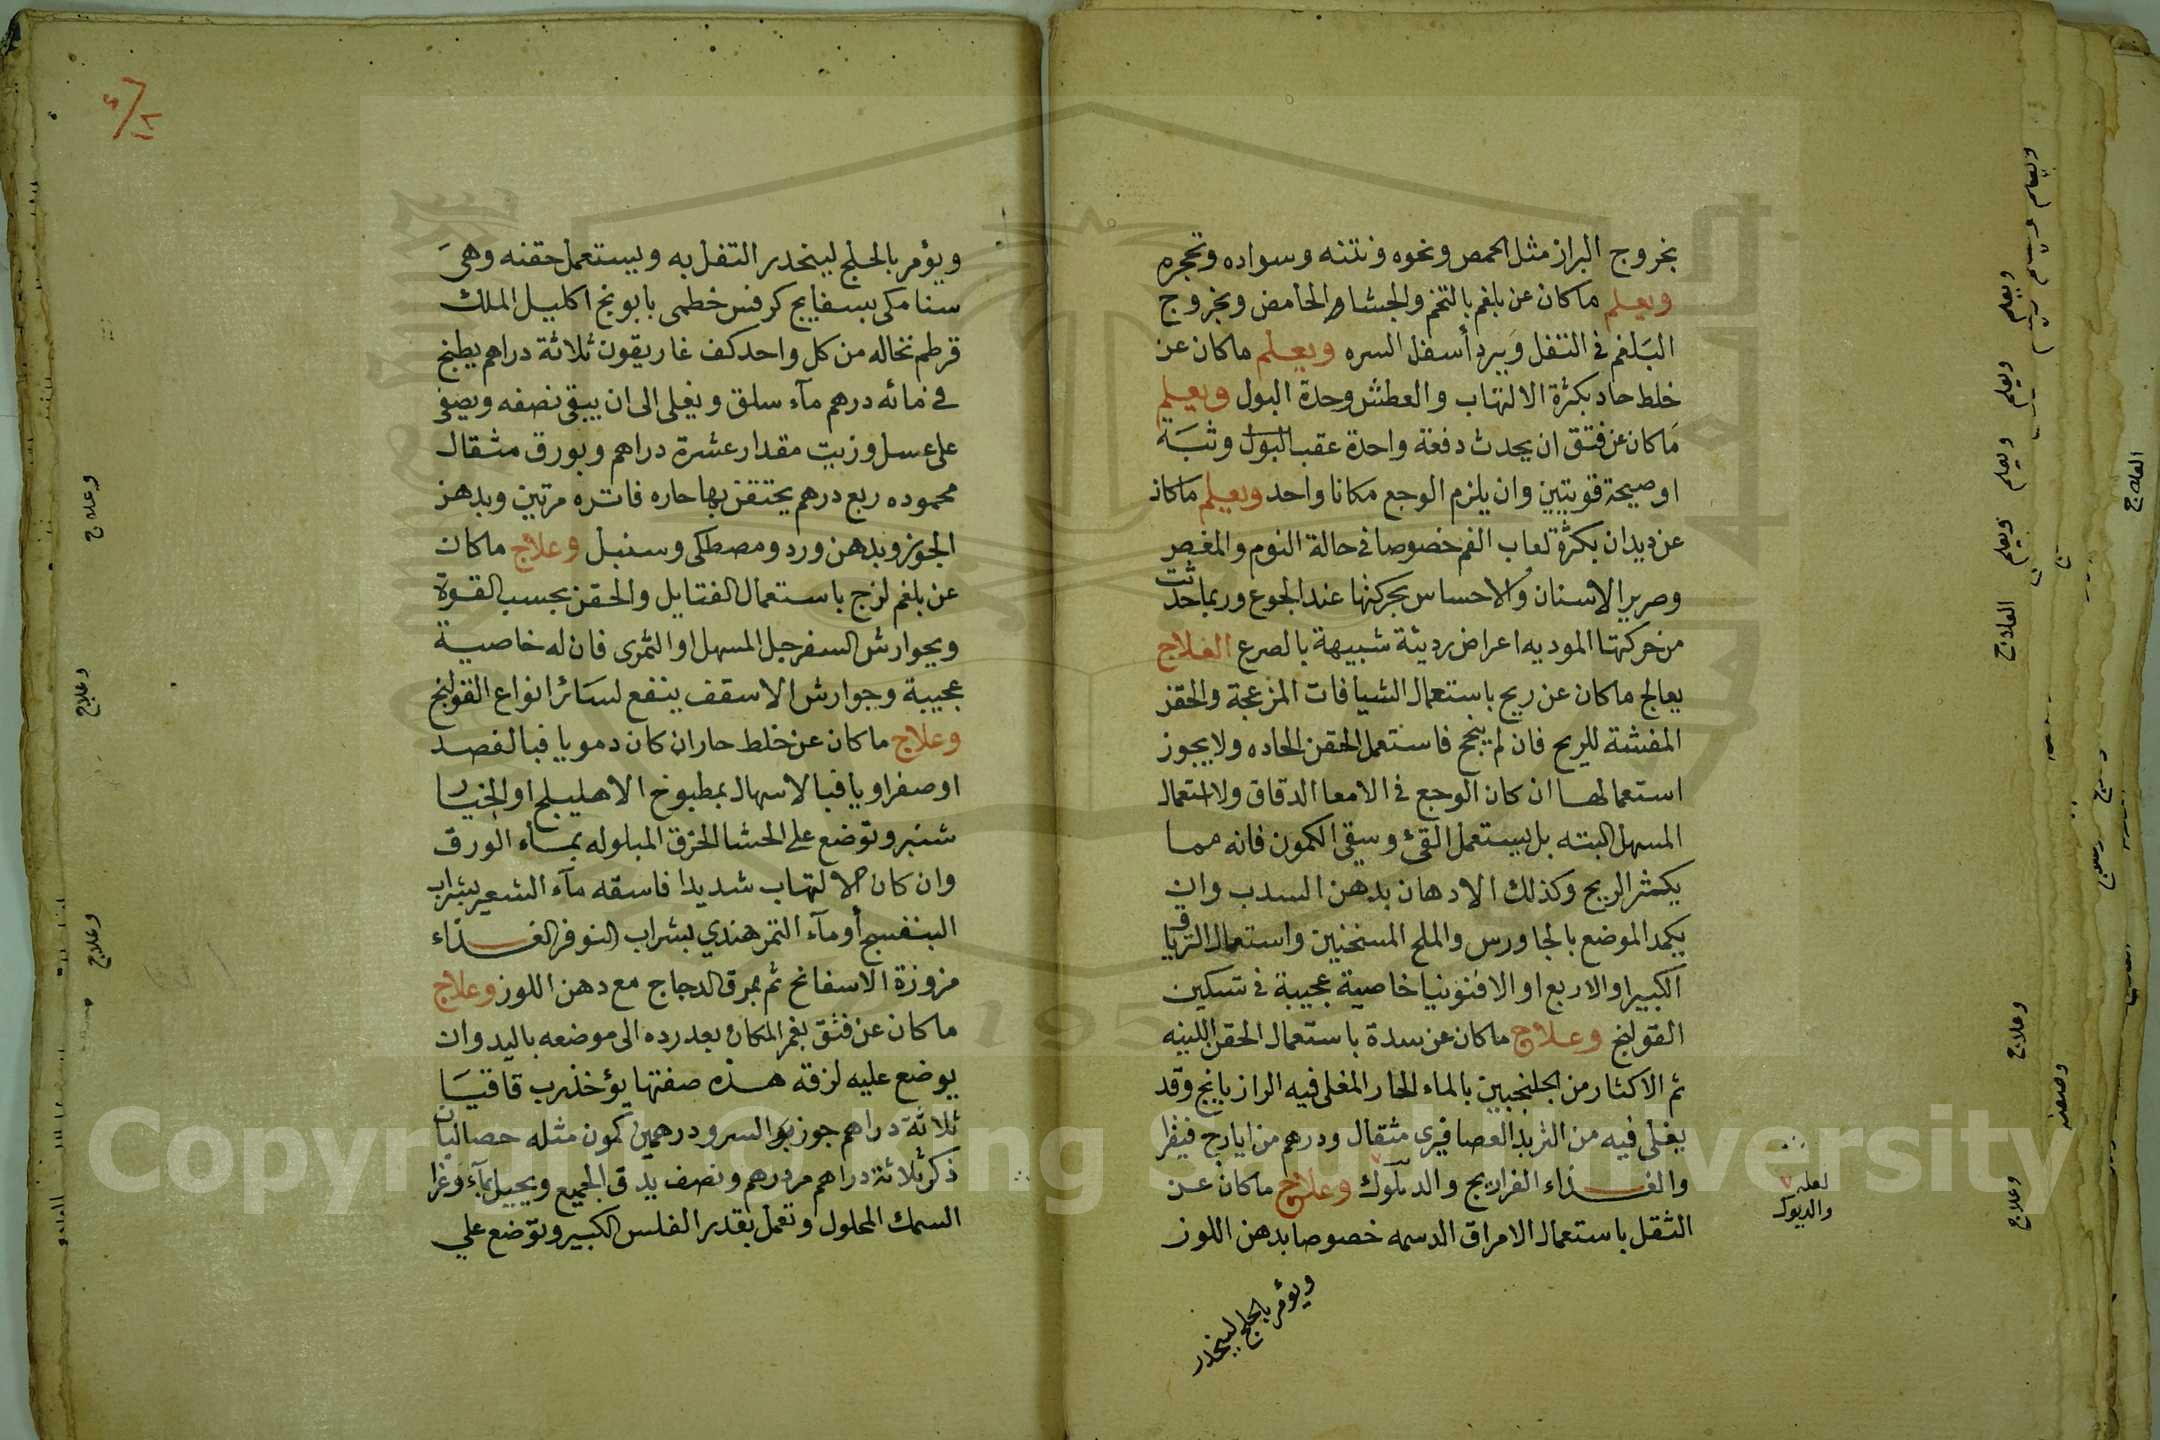 بخروج البراز مثل الحمص ونحوه ونتنه وسواده وتحجره
ويعلم ماكان عن بلغم بالتخم والجشاء الحامض وبخروج
البلغم في التفل وبرد أسفل السره ويعلم ماكان عن
خلط حاد بكثرة الالتهاب والعطش وحدة البول ويعلم
ماكان عن فتق ان يحدث دفعة واحدة عقب البول وثبة
اوصيحة قويتين وان يلزم الوجع مكانا واحد ويعلم ماكان
عن ديدان بكثرة لعاب الفم خصوصا في حالة النوم والمغص
وصرير الاسنان والاحساس بحركتها عند الجوع وربما حدثت
من حركتها الموديه اعراض رديئة شبيهة بالصرع العلاج
يعالج ماكان عن ريح باستعمال الشيافات المزعجة والحقن
المفشة للريح فان لم ينجح فاستعمل الحقن الحاده ولا يجوز
استعمالها ان كان الوجع في الامعا الدقاق ولا استعمال
المسهل البته بل يستعمل القئ وسقي الكمون فانه مما
يكثر الريح وكذلك الادهان بدهن السدب وان
يكمد الموضع بالجاورس والملح المسخنين واستعمال الترياق
الكبير او الاربع او الافنونيا خاصية عجيبة في تسكين
القولنج وعلاج ماكان عن سدة باستعمال الحقن اللينه
ثم الاكثار من الجلنجبين بالماء الحار المغلى فيه الرازيانج وقد
يغلى فيه من التربد العصافيري مثقال ودرهم من ايارج فيقرا
والغذاء الفراريج والدىلوك وعلاج ماكان عن
الثقل باستعمال الامراق الدسمه خصوصا بدهن اللوز
ويؤمر بالحلج لينحدر
لعله
والديوك
ويعلم
ويعلم
ويعلم
ويعلم
العلاج
وعلاج
وعلاج
العلاج
وصفه
ويؤمر بالحلج لينحدر التفل به ويستعمل حقنه وهي
سنا مكي بسفايج كرفس خطمى بابونج اكليل الملك
قرطم نخاله من كل واحد كف غاريقون ثلاثة دراهم يطبخ
في مائه درهم مآء سلق ويغلى الى ان يبقى نصفه ويصفى
على عسل وزيت مقدار عشرة دراهم وبورق مثقال
محموده ربع درهم يحتقن بها حاره فاتره مرتين وبدهن
الجوز وبدهن ورد ومصطكى وسنبل وعلاج ماكان
عن بلغم لزج باستعمال الفتايل والحقن بحسب القوة
وبجوارش السفرجل المسهل او التمرى فان له خاصية
عجيبة وجوارش الاسقف ينفع لسائر انواع القولنج
وعلاج ماكان عن خلط حار ان كان دمويا فبالفصد
اوصفراويا فبالاسهال بمطبوخ الاهليلج او الخيار
شنبر وتوضع على الحشا الخرق المبلوله بمآء الورق
وان كان الالتهاب شديدا فاسقه مآء الشعير بشراب
البنفسج أو مآء التمر هندي بشراب النوفر الغذاء
مزورة الاسفانخ ثم بمرق الدجاج مع دهن اللوز وعلاج
ماكان عن فتق بغمر المكان بعد رده الى موضعه باليد وان
يوضع عليه لزقه هذه صفتها يؤخذ رب قاقيا
ثلاثة دراهم جوز السرو درهمين كمون مثله حصا لبان
ذكر ثلاثة دراهم مر درهم ونصف يدق الجميع ويحيل بمآء وغرا
السمك المحلول وتعمل بقدر الفلس الكبير وتوضع علي
وعلاج
وعلاج
وعلاج
Copyright © King Saud University
195